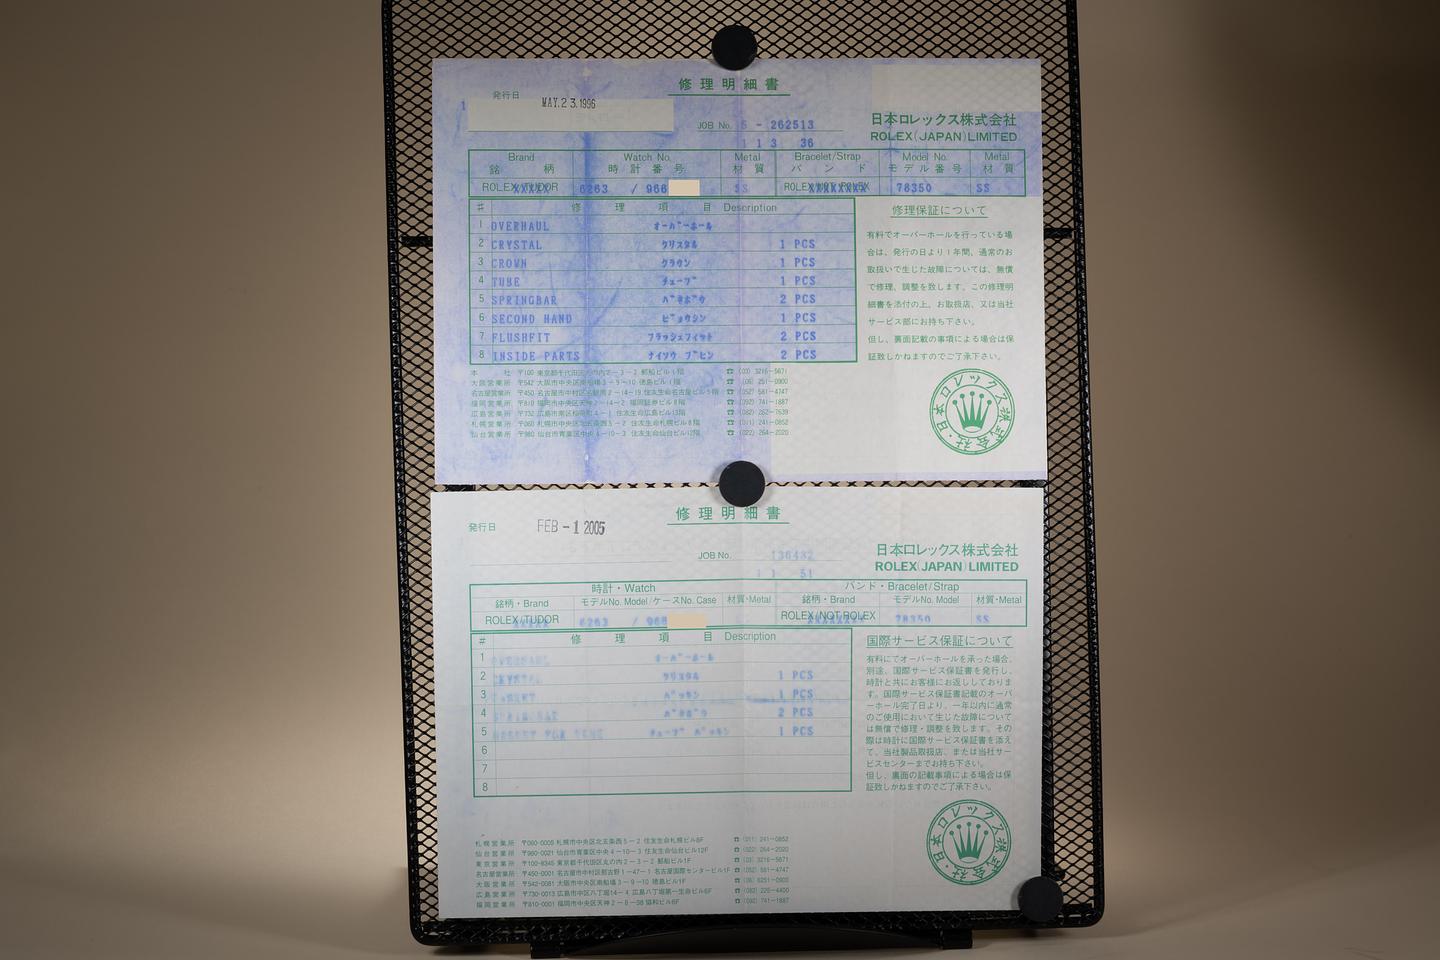 修理明細書
発行日 MAY.23.1996
JOB No. 5 - 262513
113 36
日本ロレックス株式会社
ROLEX(JAPAN)LIMITED
Brand Watch No. Metal Bracelet/Strap Model No. Metal
銘柄 時計番号 材質 バンド モデル番号 材質
ROLEX/TUDOR 6263 / 966 SS ROLEX/NOT ROLEX 78350 SS
# 修理項目 Description
1 OVERHAUL オーバーホール
2 CRYSTAL クリスタル 1 PCS
3 CROWN クラウン 1 PCS
4 TUBE チューブ 1 PCS
5 SPRINGBAR バネボウ 2 PCS
6 SECOND HAND ビョウシン 1 PCS
7 FLUSHFIT フラッシュフィット 2 PCS
8 INSIDE PARTS ナイソウ ブヒン 2 PCS
修理保証について
有料でオーバーホールを行っている場
合は、発行の日より1年間、通常のお
取扱いで生じた故障については、無償
で修理、調整を致します。この修理明
細書を添付の上、お取扱店、又は当社
サービス部にお持ち下さい。
但し、裏面記載の事項による場合は保
証致しかねますのでご了承下さい。
本社 〒100 東京都千代田区丸の内2-3-2 郵船ビル1階 ☎ (03) 3216-5671
大阪営業所 〒542 大阪市中央区南船場3-9-10 徳島ビル1階 ☎ (06) 251-0900
名古屋営業所 〒450 名古屋市中村区名駅南2-14-19 住友生命名古屋ビル ☎ (052) 581-4747
福岡営業所 〒810 福岡市中央区天神2-14-2 福岡証券ビル8階 ☎ (092) 741-1887
広島営業所 〒732 広島市南区 住友生命広島ビル13階 ☎ (082) 262-7639
札幌営業所 〒060 札幌市中央区北五条西5-2 住友生命札幌ビル8階 ☎ (011) 241-0852
仙台営業所 〒980 仙台市青葉区中央4-10-3 住友生命仙台ビル12階 ☎ (022) 264-2020
日本ロレックス株式会社
修理明細書
発行日 FEB -1 2005
JOB No. 136432
11 51
日本ロレックス株式会社
ROLEX(JAPAN)LIMITED
時計・Watch バンド・Bracelet/Strap
銘柄・Brand モデルNo. Model/ケースNo. Case 材質・Metal 銘柄・Brand モデルNo. Model 材質・Metal
ROLEX/TUDOR 6263 / 966 ROLEX/NOT ROLEX 78350 SS
# 修理項目 Description
1 OVERHAUL オーバーホール
2 CRYSTAL クリスタル 1 PCS
3 GASKET パッキン 1 PCS
4 SPRINGBAR バネボウ 2 PCS
5 GASKET FOR TUBE チューブ パッキン 1 PCS
6
7
8
国際サービス保証について
有料にてオーバーホールを承った場合、
別途、国際サービス保証書を発行し、
時計と共にお客様にお返ししておりま
す。国際サービス保証書記載のオーバ
ーホール完了日より、一年以内に通常
のご使用において生じた故障について
は無償で修理・調整を致します。その
際は時計に国際サービス保証書を添え
て、当社製品取扱店、または当社サー
ビスセンターまでお持ち下さい。
但し、裏面の記載事項による場合は保
証致しかねますのでご了承下さい。
札幌営業所 〒060-0005 札幌市中央区北五条西5-2 住友生命札幌ビル8F ☎ (011) 241-0852
仙台営業所 〒980-0021 仙台市青葉区中央4-10-3 住友生命仙台ビル12F ☎ (022) 264-2020
東京営業所 〒100-8345 東京都千代田区丸の内2-3-2 郵船ビル1F ☎ (03) 3216-5671
名古屋営業所 〒450-0001 名古屋市中村区那古野1-47-1 名古屋国際センタービル1F ☎ (052) 581-4747
大阪営業所 〒542-0081 大阪市中央区南船場3-9-10 徳島ビル1F ☎ (06) 6251-0900
広島営業所 〒730-0013 広島市中区八丁堀14-4 広島八丁堀第一生命ビル6F ☎ (082) 228-4400
福岡営業所 〒810-0001 福岡市中央区天神2-8-38 協和ビル6F ☎ (092) 741-1887
日本ロレックス株式会社